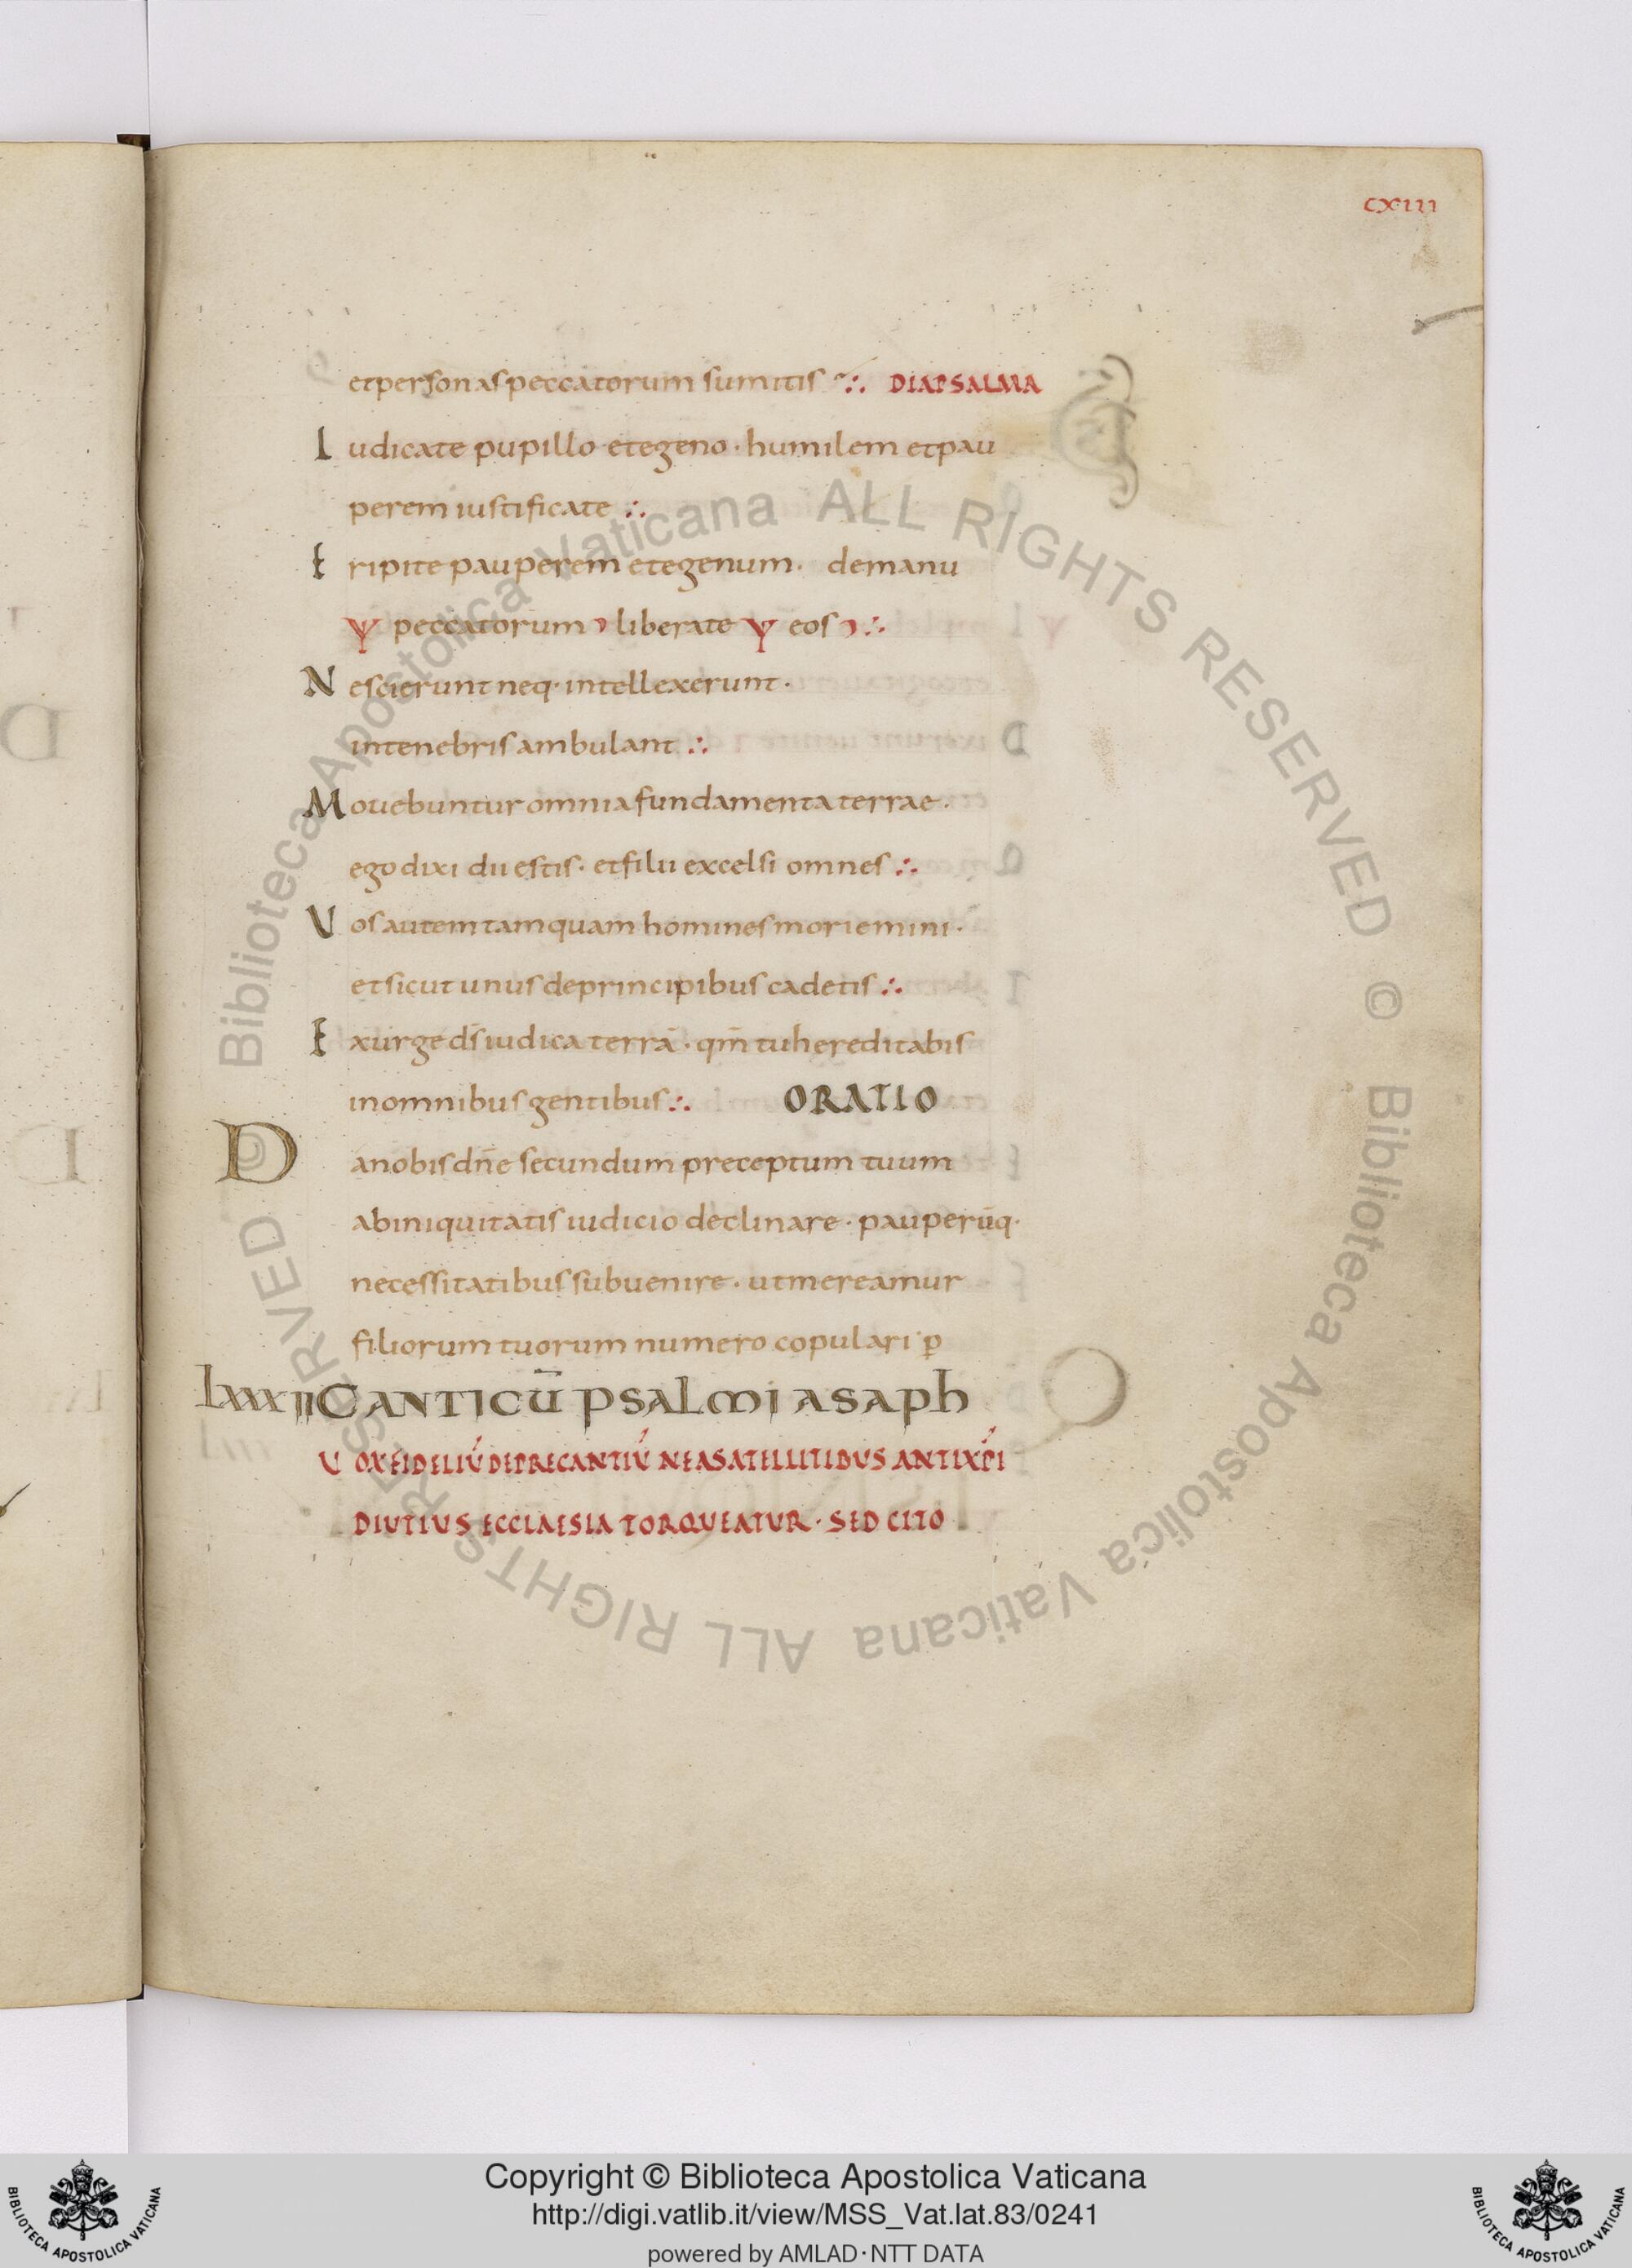 cxiii
et personas peccatorum sumitis ∴ DIAPSALMA
Iudicate pupillo et egeno · humilem et pau
perem iustificate ∴
Eripite pauperem et egenum · de manu
Ѱ peccatorum ר liberate Ѱ eos ר ∴
Nescierunt neq· intellexerunt ·
in tenebris ambulant ∴
Mouebuntur omnia fundamenta terrae ·
ego dixi dii estis · et filii excelsi omnes ∴
Uos autem tamquam homines moriemini ·
et sicut unus de principibus cadetis ∴
Exurge d̄s iudica terrā · qm̄ tu hereditabis
in omnibus gentibus ∴ ORATIO
Da nobis dn̄e secundum preceptum tuum
ab iniquitatis iudicio declinare · pauperūq·
necessitatibus subuenire · ut mereamur
filiorum tuorum numero copulari · p̄
Lxxxii CANTICŪ PSALMI ASAPH
UOX FIDELIŪ DEPRECANTIŪ NE A SATELLITIBUS ANTIXP̄I
DIUTIUS ECCLAESIA TORQUEATUR · SED CITO
Biblioteca Apostolica Vaticana ALL RIGHTS RESERVED © Biblioteca Apostolica Vaticana ALL RIGHTS RESERVED ©
Copyright © Biblioteca Apostolica Vaticana
http://digi.vatlib.it/view/MSS_Vat.lat.83/0241
powered by AMLAD·NTT DATA
BIBLIOTECA APOSTOLICA VATICANA
BIBLIOTECA APOSTOLICA VATICANA